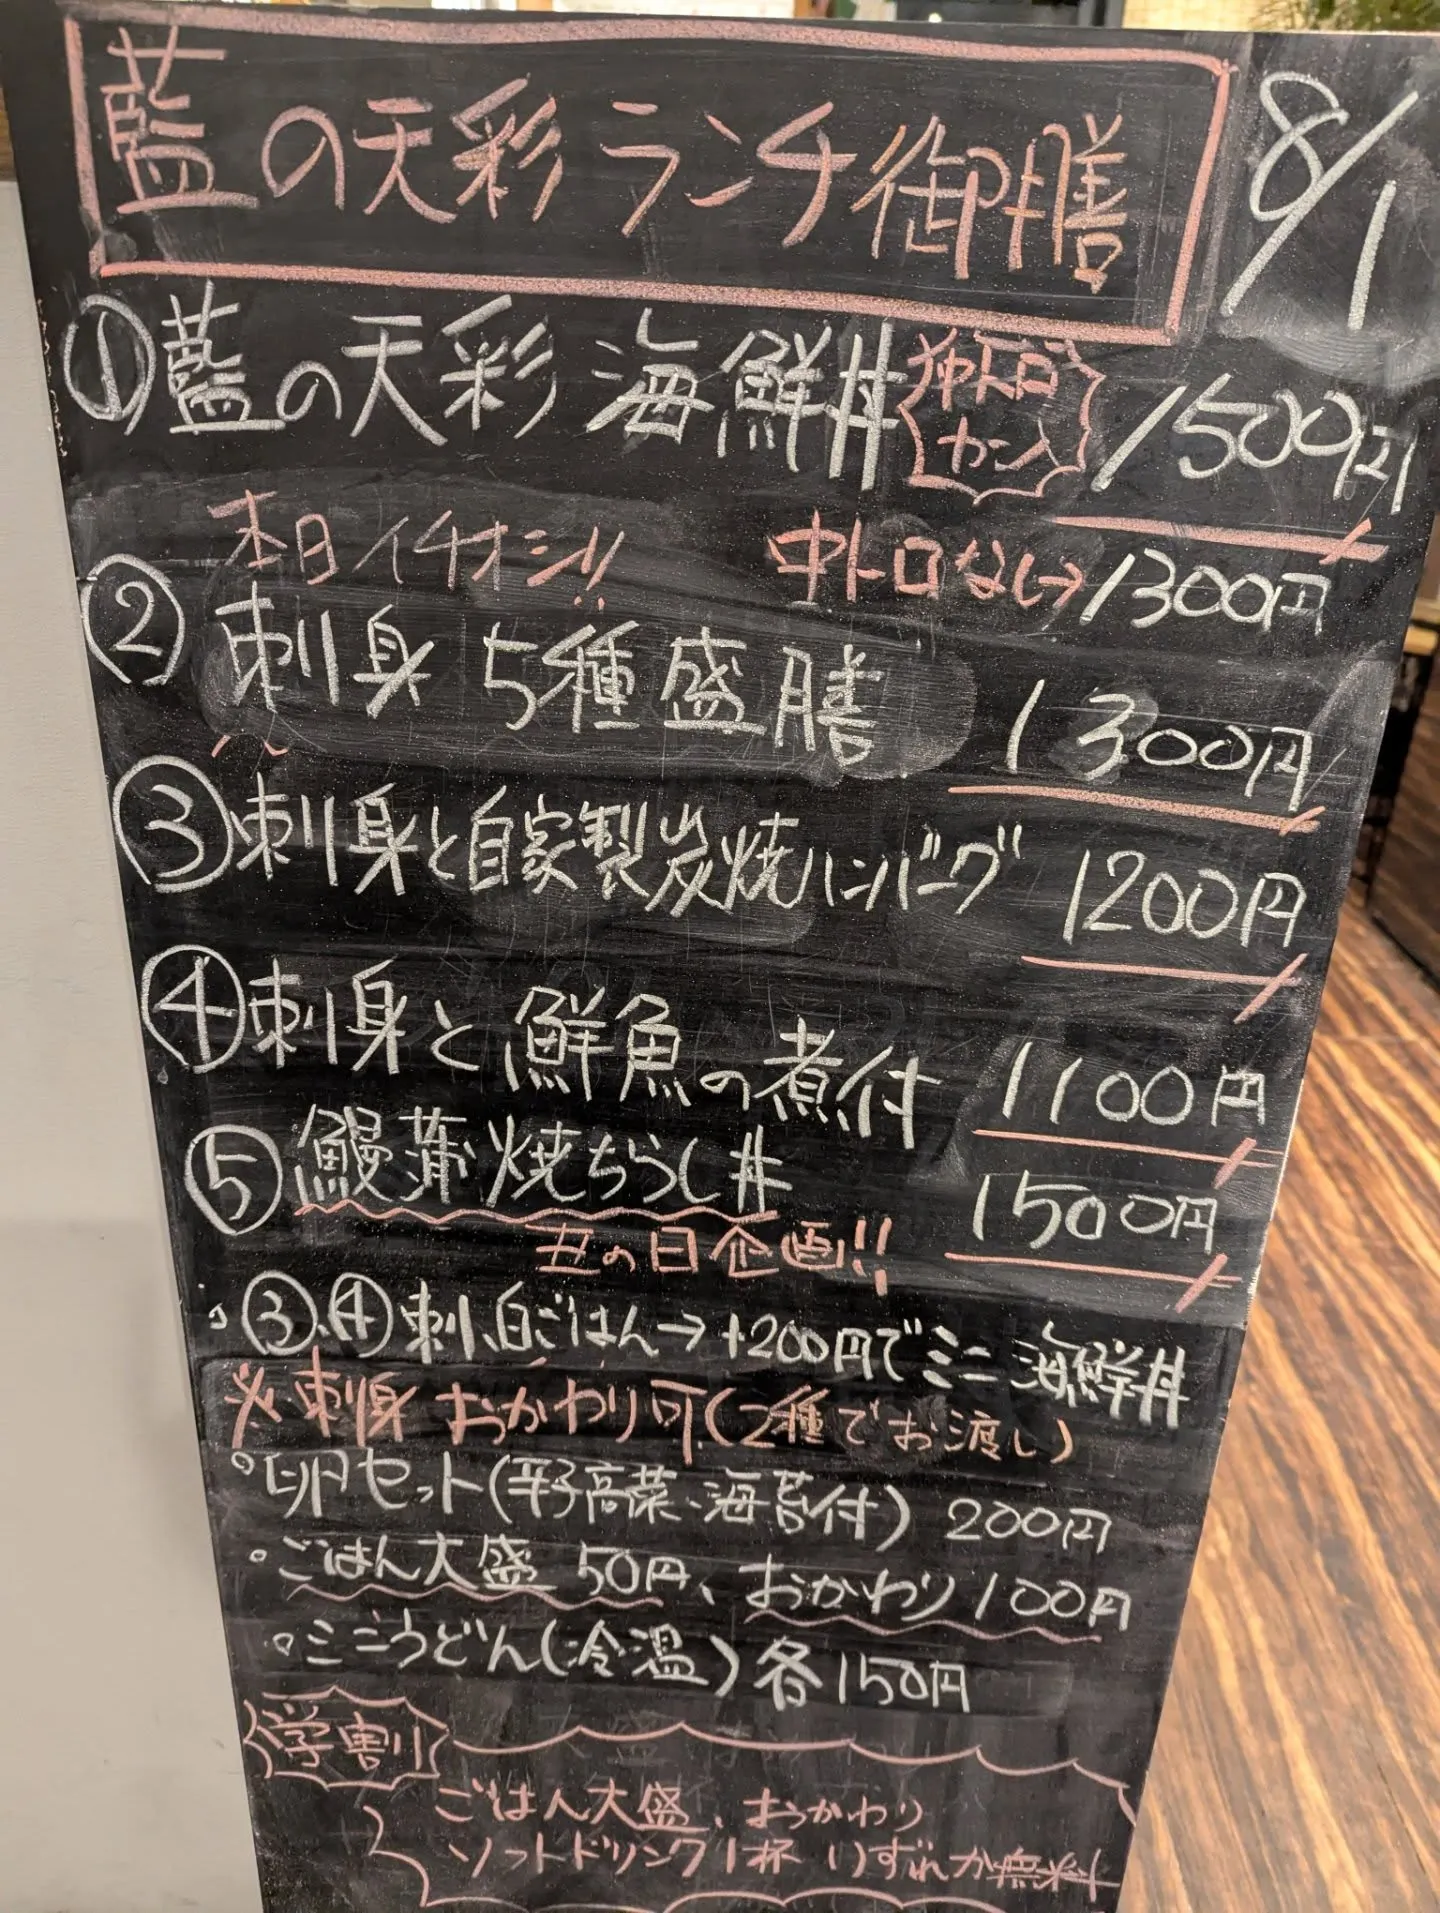 藍の天彩ランチ御膳 8/1
①藍の天彩 海鮮丼 1500円
カン
本日イチオシ!! 中トロなし→1300円
②刺身 5種盛膳 1300円
③刺身と自家製炭焼ハンバーグ 1200円
④刺身と鮮魚の煮付 1100円
⑤鰻蒲焼ちらし丼 1500円
丑の日企画!!
③、④刺、白ごはん→+200円でミニ海鮮丼
※刺身 おかわり可(2種でお渡し)
◦卵セット(辛子高菜、海苔付) 200円
◦ごはん大盛 50円、おかわり100円
◦ミニうどん(冷温)各150円
学割
ごはん大盛、おかわり
ソフトドリンク1杯 いずれか無料